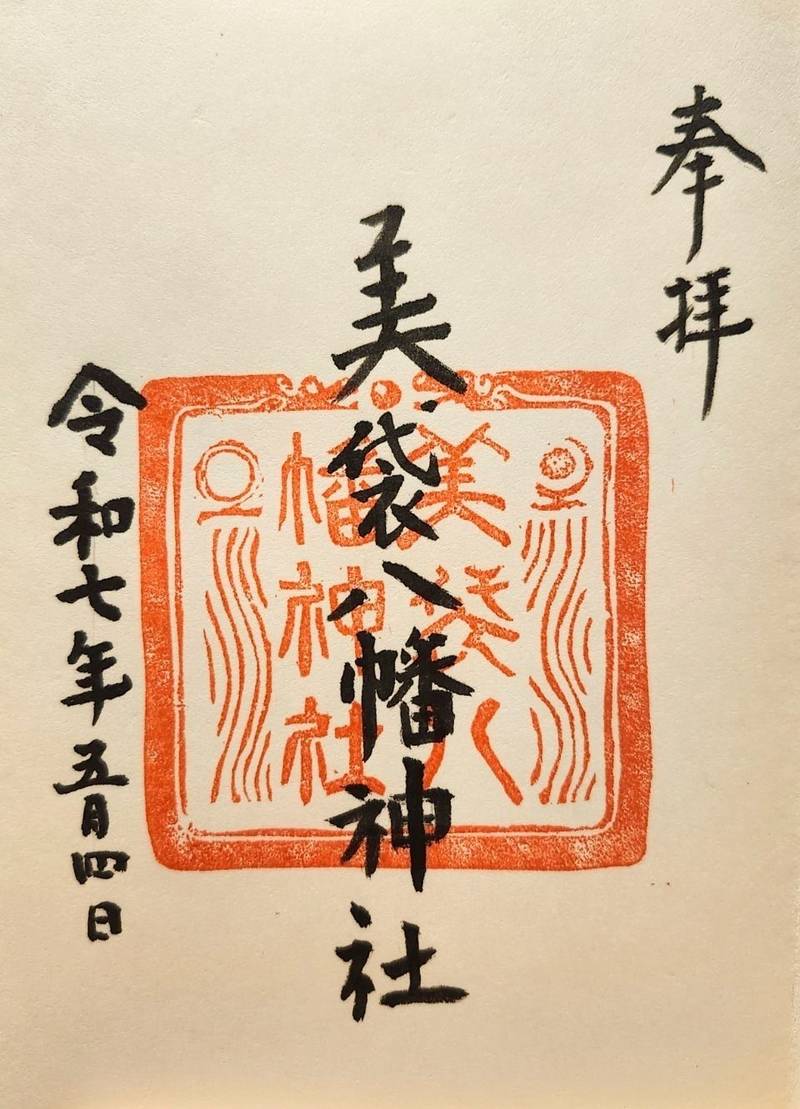 奉拝
美袋八幡神社
美袋八
幡神社
令和七年五月四日